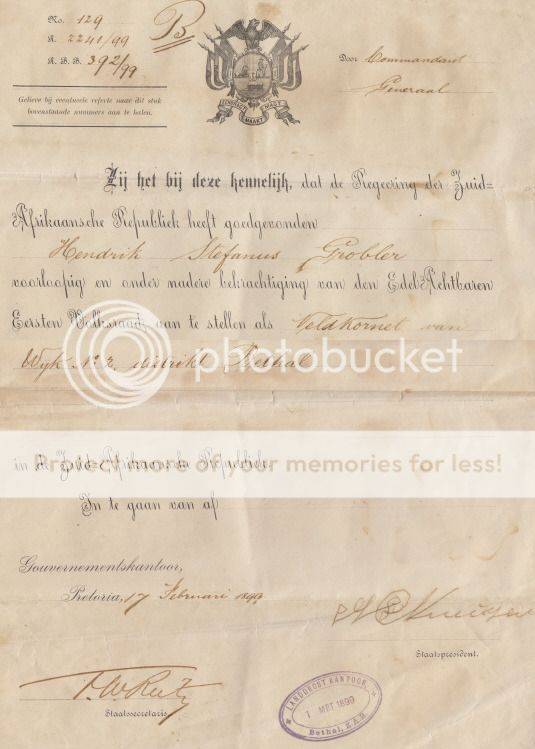 No. 129
R. 2241/99
R. B. B. 392/99
B
Gelieve bij eventueele referte naar dit stuk
bovenstaande nummers aan te halen.
EENDRAGT MAAKT MAGT
Door Commandant
Generaal
Zij het bij deze kennelijk, dat de Regeering der Zuid-
Afrikaansche Republiek heeft goedgevonden
Hendrik Stefanus Grobler
voorloopig en onder nadere bekrachtiging van den Edel Achtbaren
Eersten Volksraad, aan te stellen als Veldkornet van
Wyk No 2, distrikt Bethal
photobucket
Protect more of your memories for less!
in de Zuid-Afrikaansche Republiek
In te gaan van af
Gouvernementskantoor,
Pretoria, 17 Februari 1899
Staatspresident.
F. W. Reitz
Staatssecretaris
LANDDROST KANTOOR,
1 MRT 1899
Bethal, Z.A.R.